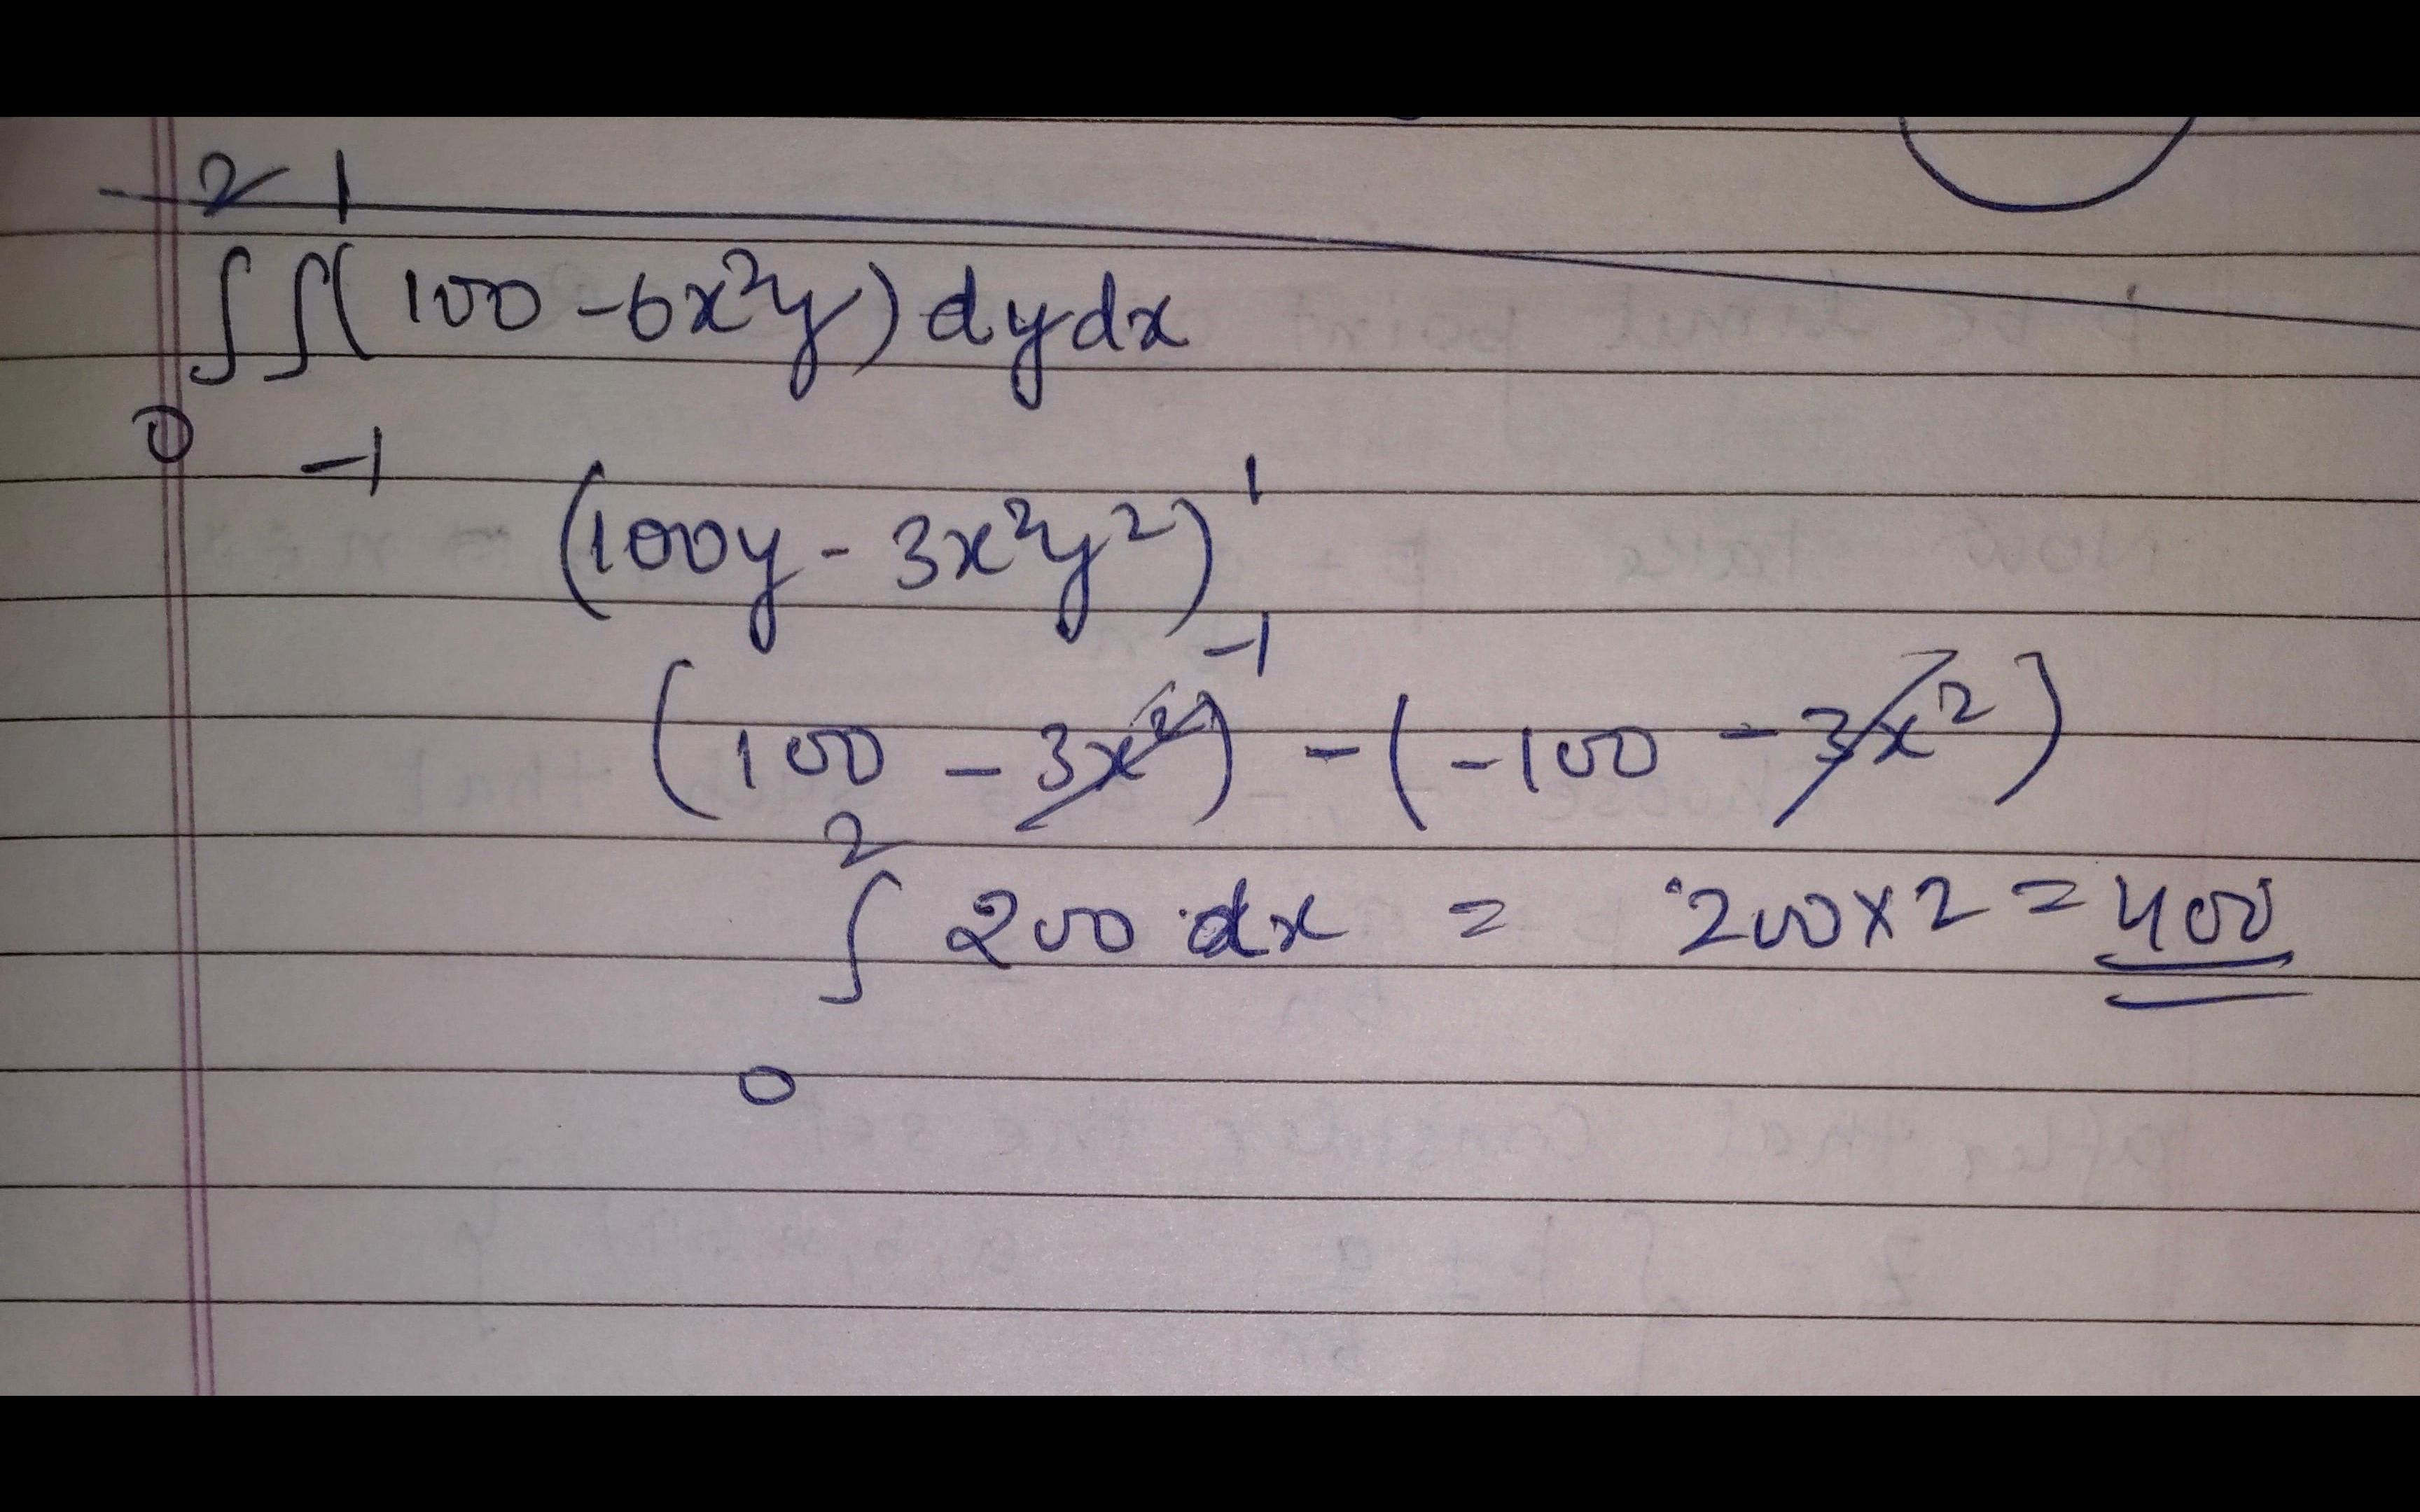 2 1
∫∫(100 -6x²y) dy dx
0 -1
(100y - 3x²y²)¹₋₁
(100 - 3x²) - (-100 - 3x²)
2
∫ 200 dx = 200x2 = 400
0